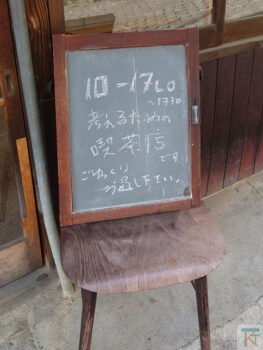 10-17LO
~1730
考えるための
喫茶店
です
ごゆっくり
お過し下さい。